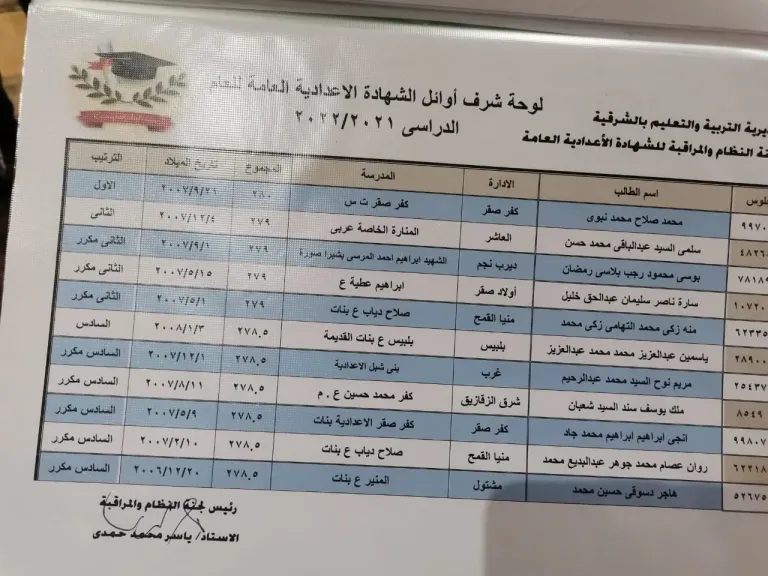 يرية التربية والتعليم بالشرقية
نة النظام والمراقبة للشهادة الأعدادية العامة
لوحة شرف أوائل الشهادة الاعدادية العامة للعام
الدراسى ٢٠٢٢/٢٠٢١
لوس اسم الطالب الادارة المدرسة المجموع تاريخ الميلاد الترتيب
٩٩٧٠ محمد صلاح محمد نبوى كفر صقر كفر صقر ت س ٢٨٠ ٢٠٠٧/٩/٢١ الاول
٤٨٢٦ سلمى السيد عبدالباقى محمد حسن العاشر المنارة الخاصة عربى ٢٧٩ ٢٠٠٧/١٢/٤ الثانى
٧٨١٨٩ بوسى محمود رجب بلاسى رمضان ديرب نجم الشهيد ابراهيم احمد المرسى بشبرا صورة ٢٧٩ ٢٠٠٧/٩/١ الثانى مكرر
١٠٧٢٠ سارة ناصر سليمان عبدالحق خليل أولاد صقر ابراهيم عطية ع ٢٧٩ ٢٠٠٧/٥/١٥ الثانى مكرر
٦٢٣٣٥ منه زكى محمد التهامى زكى محمد منيا القمح صلاح دياب ع بنات ٢٧٩ ٢٠٠٧/٥/١ الثانى مكرر
٢٨٩٠٠ ياسمين عبدالعزيز محمد محمد عبدالعزيز بلبيس بلبيس ع بنات القديمة ٢٧٨.٥ ٢٠٠٨/١/٣ السادس
٢٥٤٣٧ مريم نوح السيد محمد عبدالرحيم غرب بنى شبل الاعدادية ٢٧٨.٥ ٢٠٠٧/١٢/١ السادس مكرر
٨٥٤٩ ملك يوسف سند السيد شعبان شرق الزقازيق كفر محمد حسين ع . م ٢٧٨.٥ ٢٠٠٧/٨/١١ السادس مكرر
٩٩٨٠٧ انجى ابراهيم ابراهيم محمد جاد كفر صقر كفر صقر الاعدادية بنات ٢٧٨.٥ ٢٠٠٧/٥/٩ السادس مكرر
٦٢٢١٨ روان عصام محمد جوهر عبدالبديع محمد منيا القمح صلاح دياب ع بنات ٢٧٨.٥ ٢٠٠٧/٢/١٠ السادس مكرر
٥٢٦٧٥ هاجر دسوقى حسين محمد مشتول المنير ع بنات ٢٧٨.٥ ٢٠٠٦/١٢/٢٠ السادس مكرر
رئيس لجنة النظام والمراقبة
الاستاذ/ ياسر محمد حمدى